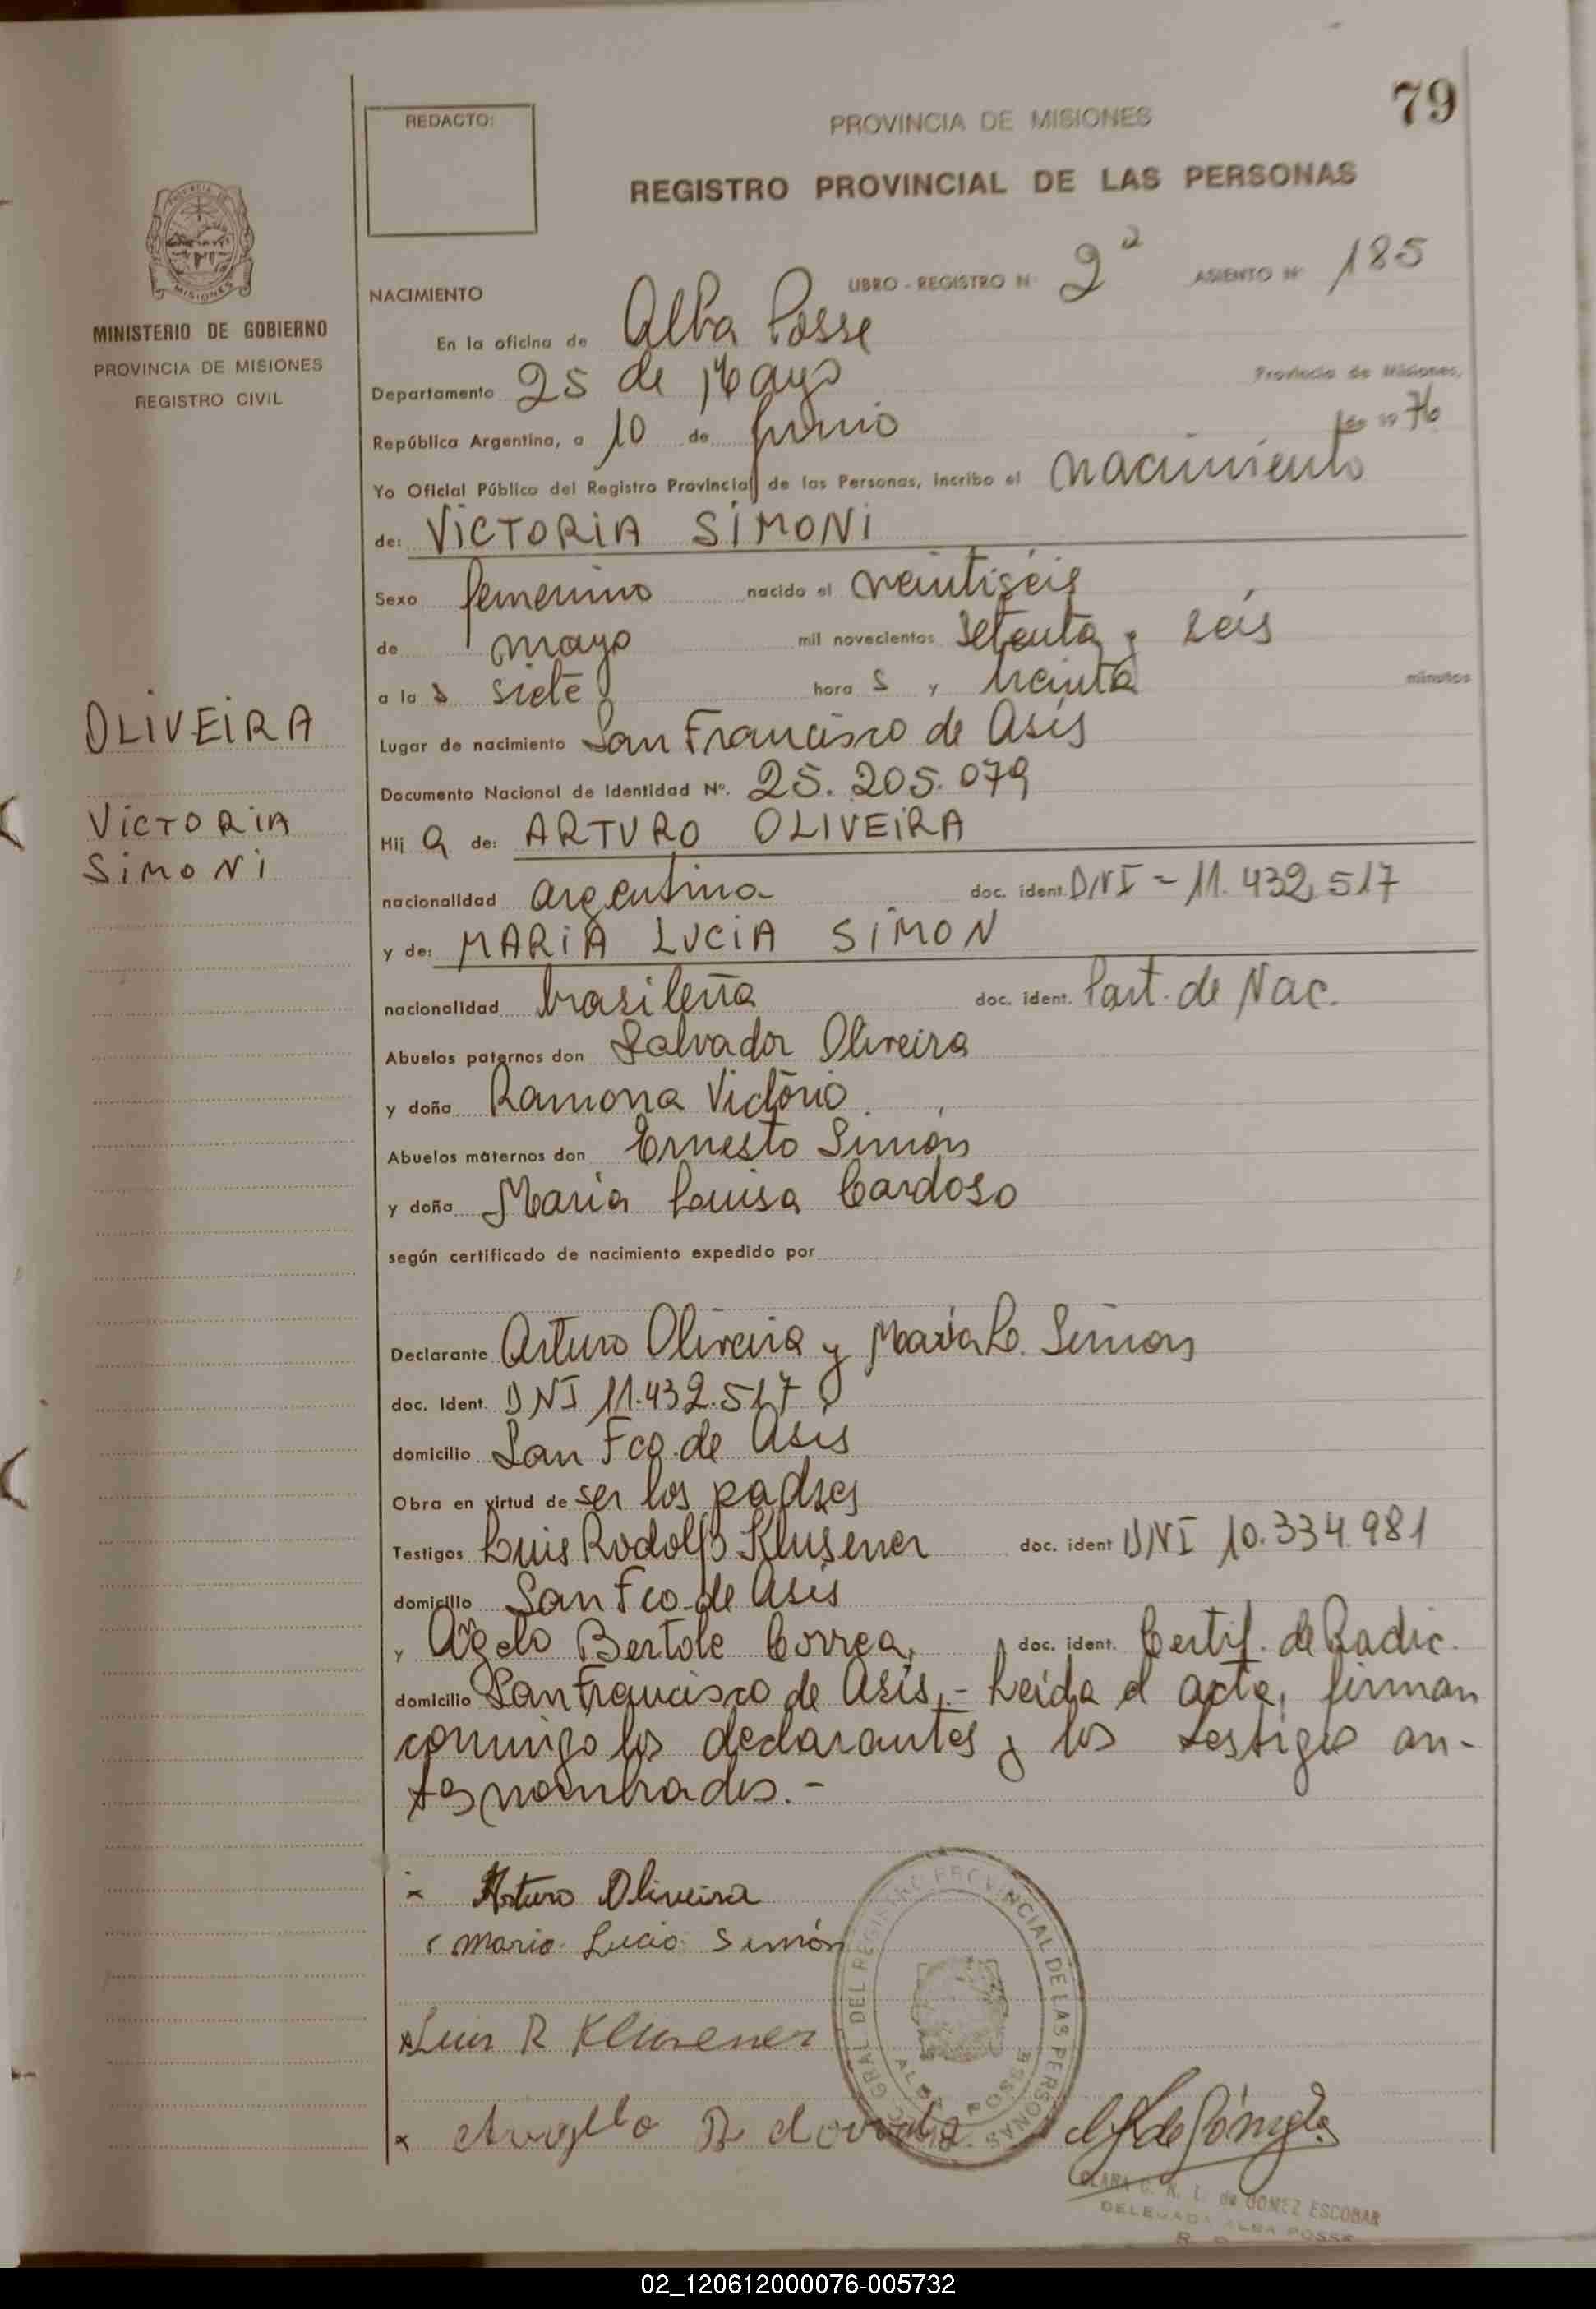 79
REDACTO:
PROVINCIA DE MISIONES
REGISTRO PROVINCIAL DE LAS PERSONAS
MISIONES
MINISTERIO DE GOBIERNO
PROVINCIA DE MISIONES
REGISTRO CIVIL
OLIVEIRA
VICTORIA
SIMONI
NACIMIENTO LIBRO - REGISTRO N 2ª ASIENTO Nº 185
En la oficina de Alba Posse
Departamento 25 de Mayo Provincia de Misiones,
República Argentina, a 10 de Junio de 19 76
Yo Oficial Público del Registro Provincial de las Personas, inscribo el nacimiento
de: VICTORIA SIMONI
Sexo femenino nacido el veintiséis
de mayo mil novecientos setenta y seis
a la s siete hora s y treinta minutos
Lugar de nacimiento San Francisco de Asís
Documento Nacional de Identidad Nº. 25.205.079
Hij a de: ARTURO OLIVEIRA
nacionalidad argentina doc. ident. DNI - 11.432.517
y de: MARIA LUCIA SIMON
nacionalidad brasileña doc. ident. Part. de Nac.
Abuelos paternos don Salvador Oliveira
y doña Ramona Victorio
Abuelos maternos don Ernesto Simón
y doña María Luisa Cardoso
según certificado de nacimiento expedido por
Declarante Arturo Oliveira y María L. Simon
doc. Ident. DNI 11.432.517
domicilio San Fco. de Asís
Obra en virtud de ser los padres
Testigos Luis Rodolfo Klusener doc. ident DNI 10.334.981
domicilio San Fco. de Asís
y Bertole Correa, doc. ident. Certif. de Radic.
domicilio San Francisco de Asís.- Leída el acta, firman
conmigo los declarantes y los testigos an-
tes nombrados.-
x Arturo Oliveira
Maria Lucia Simón
x Luis R Klusener
x
GRAL DEL REGISTRO PROVINCIAL DE LAS PERSONAS
ALBA POSSE
CLARA de GOMEZ ESCOBAR
DELEGADA ALBA POSSE
02_120612000076-005732